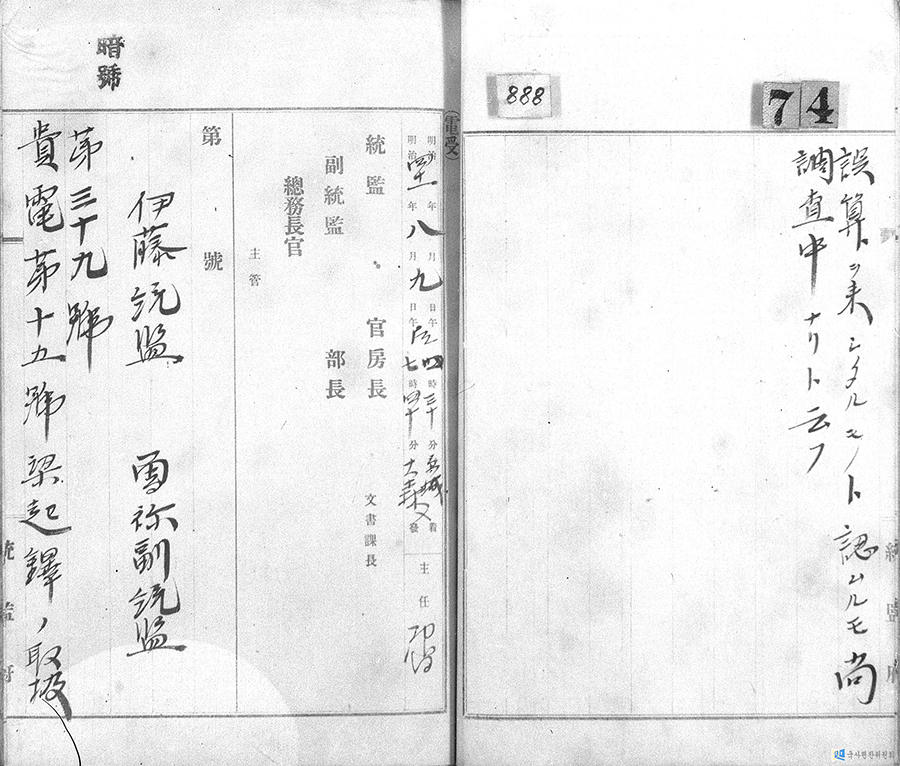 888
74
誤算ト
調査中ナリト云フ
認ムルモ尚
暗號
(電受)
明治 年八月九日午后四時三十分京城着
明治四一年 月 日午 七時四十分大森發
主任
統監
官房長
文書課長
副統監
部長
總務長官
主管
第 號
伊藤統監 曾祢副統監
第三十九號
貴電第十五號梁起鐸ノ取扱
統監府
統監府
국사편찬위원회